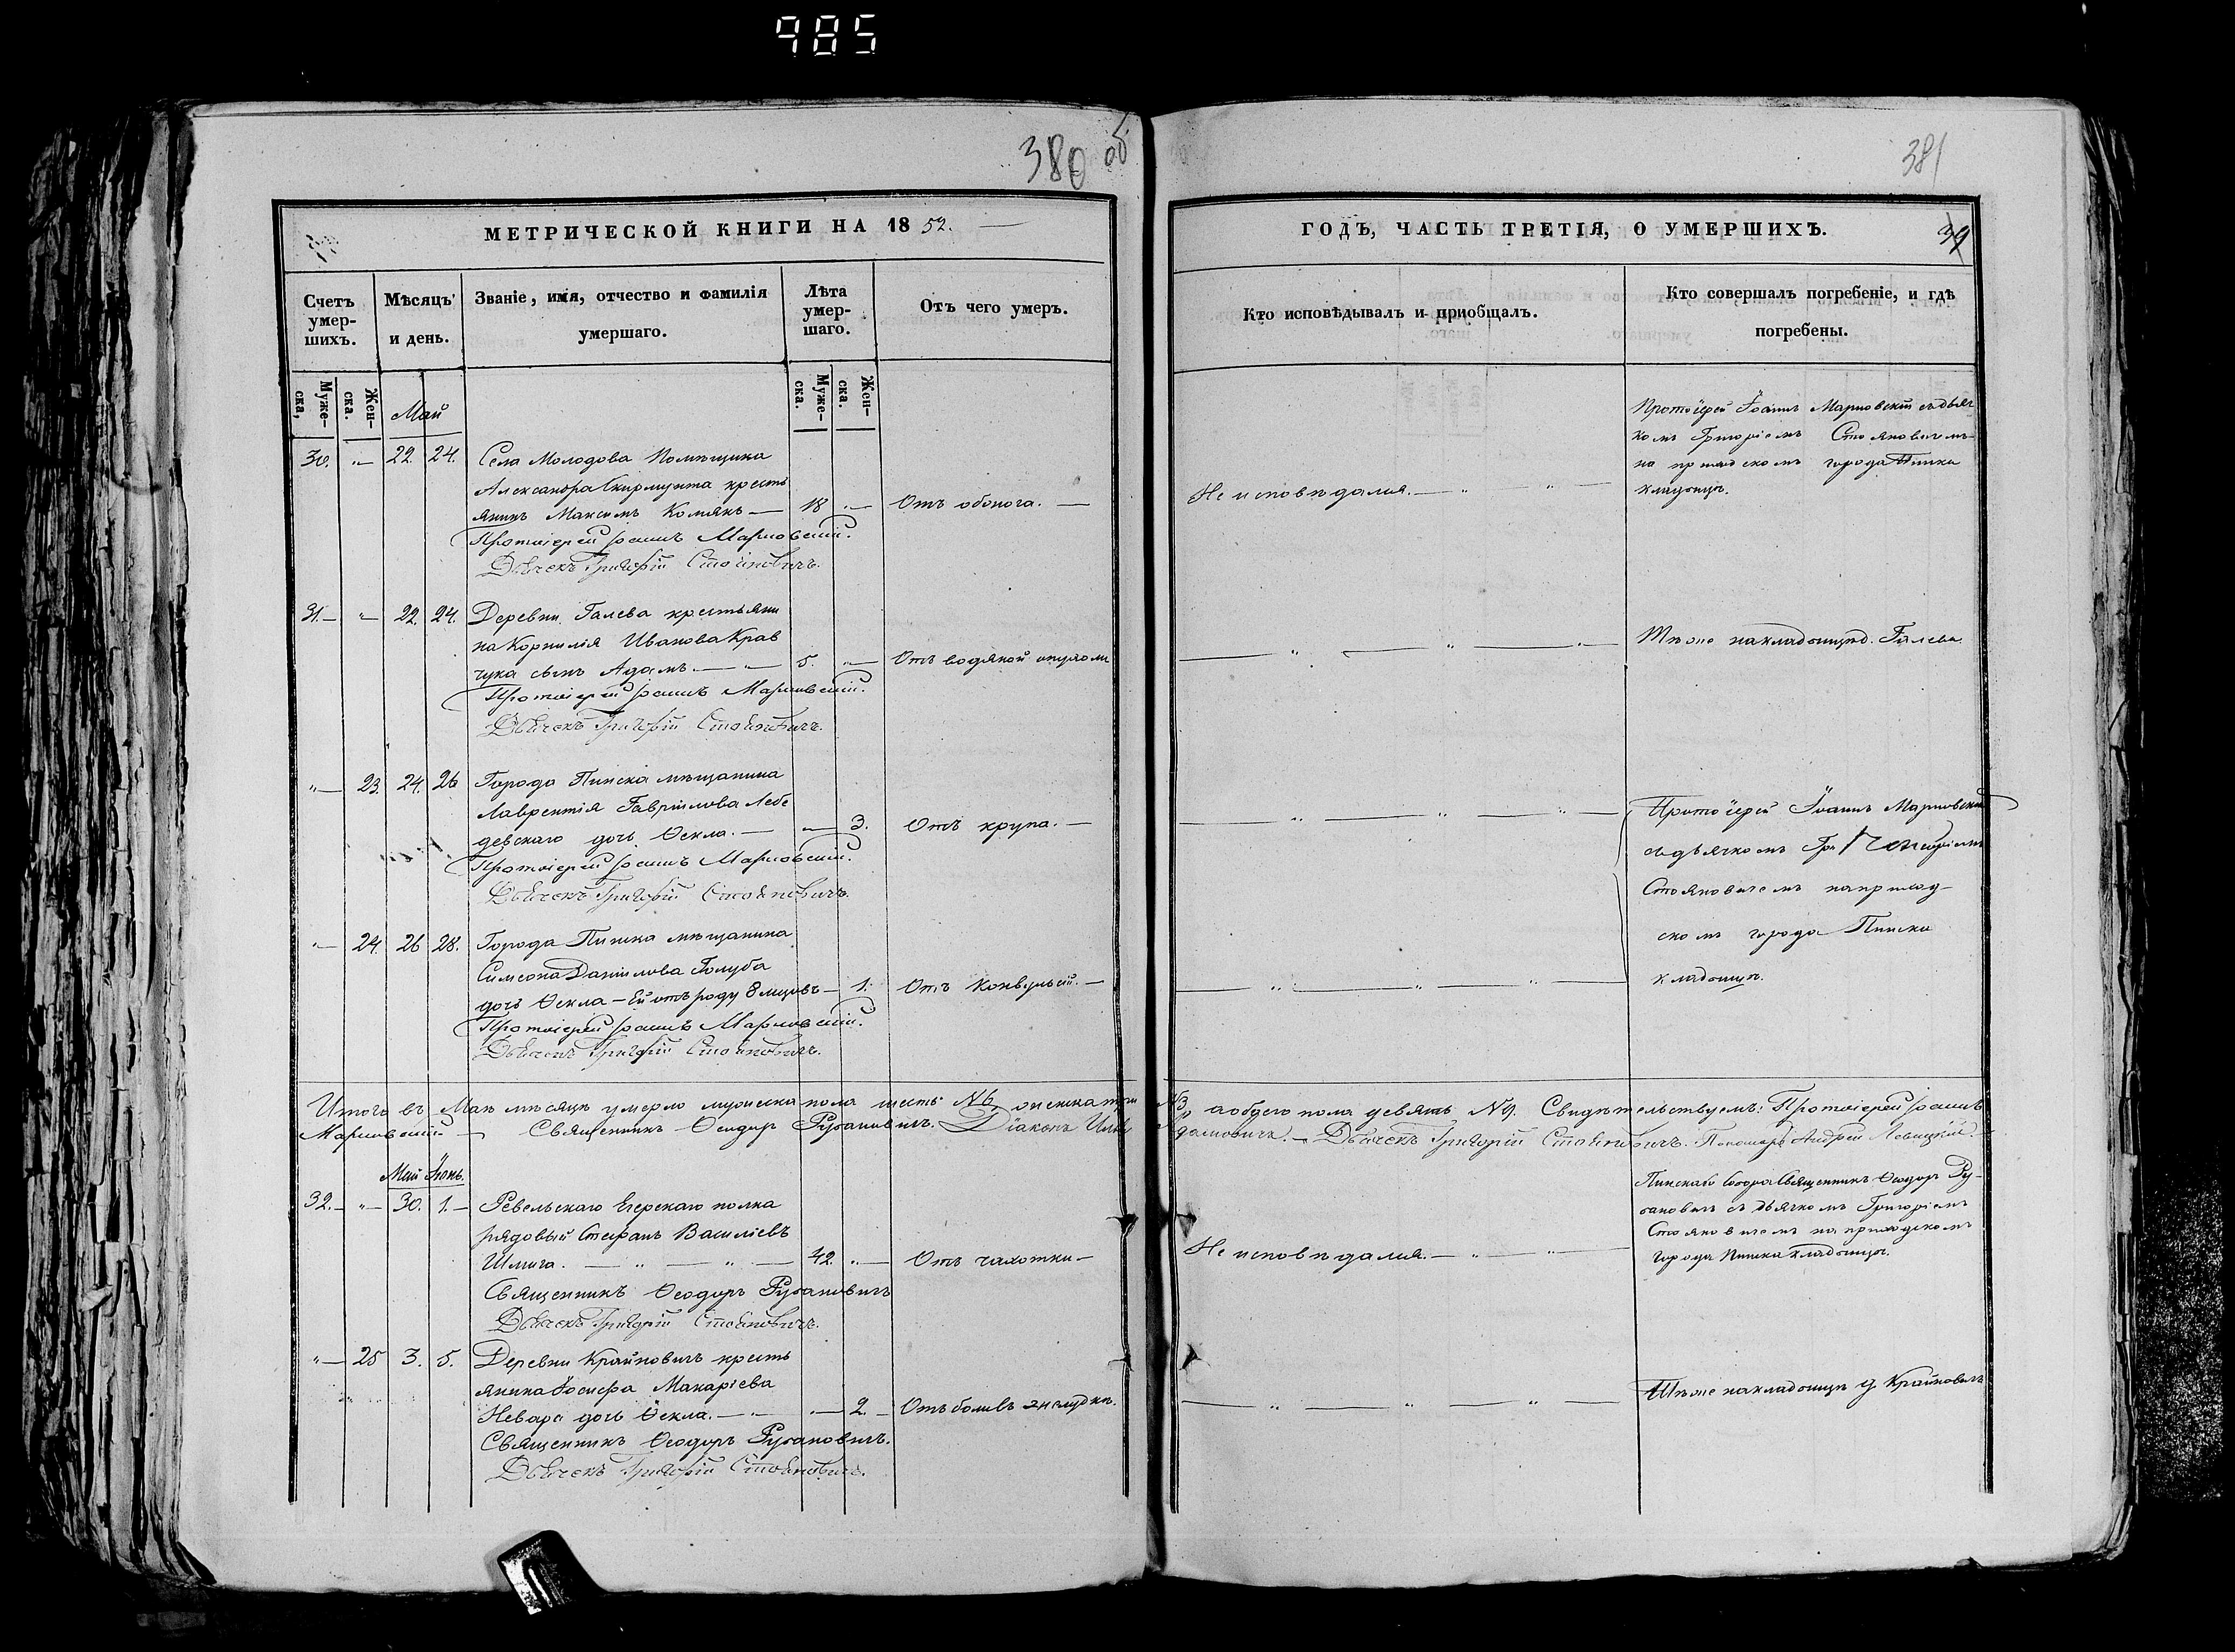 985
380 об
381
МЕТРИЧЕСКОЙ КНИГИ НА 1852.
ГОДЪ, ЧАСТЬ ТРЕТІЯ, О УМЕРШИХЪ.
39
Счетъ умер-шихъ.
Мѣсяцъ и день.
Званіе, имя, отчество и фамилія умершаго.
Лѣта умер-шаго.
Отъ чего умеръ.
Кто исповѣдывалъ и приобщалъ.
Кто совершалъ погребеніе, и гдѣ погребены.
Муже-ска,
Жен-ска.
Муже-ска.
Жен-ска.
Май
30. „ 22. 24. Села Молодова Помѣщика
Александра Скирмунта кресть
янинъ Максимъ Комякъ — 18 „ — Отъ
Протоіерей Іоаннъ Марновскій.
Дьячекъ Григорій Стояновичъ.
Не исповѣдался. — „ — „ —
Протоіерей Іоаннъ Марновскій съ дьяч
комъ Григоріемъ Стояновичемъ
на приходскомъ города Пинска
кладбищѣ.
31. — „ 22. 24. Деревни Галева крестьяни
на Корнилія Иванова Крав
чука сынъ Адамъ. — „ — 5. „ — Отъ водяной опухоли
Протоіерей Іоаннъ Марновскій.
Дьячекъ Григорій Стояновичъ.
— „ — „ — „ —
Тѣ же на кладбищѣ д. Галева.
„ — 23. 24. 26 Города Пинска мѣщанина
Лаврентія Гавріилова Лебе
девскаго дочь Ѳекла. — „ — 3. Отъ крупа. —
Протоіерей Іоаннъ Марновскій.
Дьячекъ Григорій Стояновичъ.
— „ — „ — „ —
Протоіерей Іоаннъ Марновскій
съ дьячкомъ Григоріемъ
Стояновичемъ на приход-
скомъ города Пинска
кладбищѣ.
„ — 24. 26 28. Города Пинска мѣщанина
Симеона Даніилова Голуба
дочь Ѳекла — Ей отъ роду 8 мцовъ — 1. Отъ Конвульсій. —
Протоіерей Іоаннъ Марновскій.
Дьячекъ Григорій Стояновичъ.
— „ — „ — „ —
Итого въ Маѣ мѣсяцѣ умерло мужеска пола шесть №6, женска три №3, а обоего пола девять №9. Свидѣтельствуемъ: Протоіерей Іоаннъ
Марновскій — Священникъ Ѳеодоръ Рубановичъ. Діаконъ Дьячекъ Григорій Стояновичъ. Пономарь Андрей Левицкій.
Май Іюнь.
32. — „ — 30. 1. — Ревельскаго Егерскаго полка
рядовый Стефанъ Василіевъ
Шмига. — „ — „ — 42. „ — Отъ чахотки —
Священникъ Ѳеодоръ Рубановичъ
Дьячекъ Григорій Стояновичъ.
Не исповѣдался. — „ — „ —
Пинскаго Собора Священникъ Ѳеодоръ Ру-
бановичъ съ дьячкомъ Григоріемъ
Стояновичемъ на приходскомъ
города Пинска кладбищѣ.
„ — 25 3. 5. Деревни Крайновичъ кресть
янина Іосифа Макаріева
Невара дочь Ѳекла. — „ — „ — 2. — Отъ боли въ желудкѣ.
Священникъ Ѳеодоръ Рубановичъ.
Дьячекъ Григорій Стояновичъ.
— „ — „ — „ —
Тѣ же на кладбищѣ д Крайновичъ